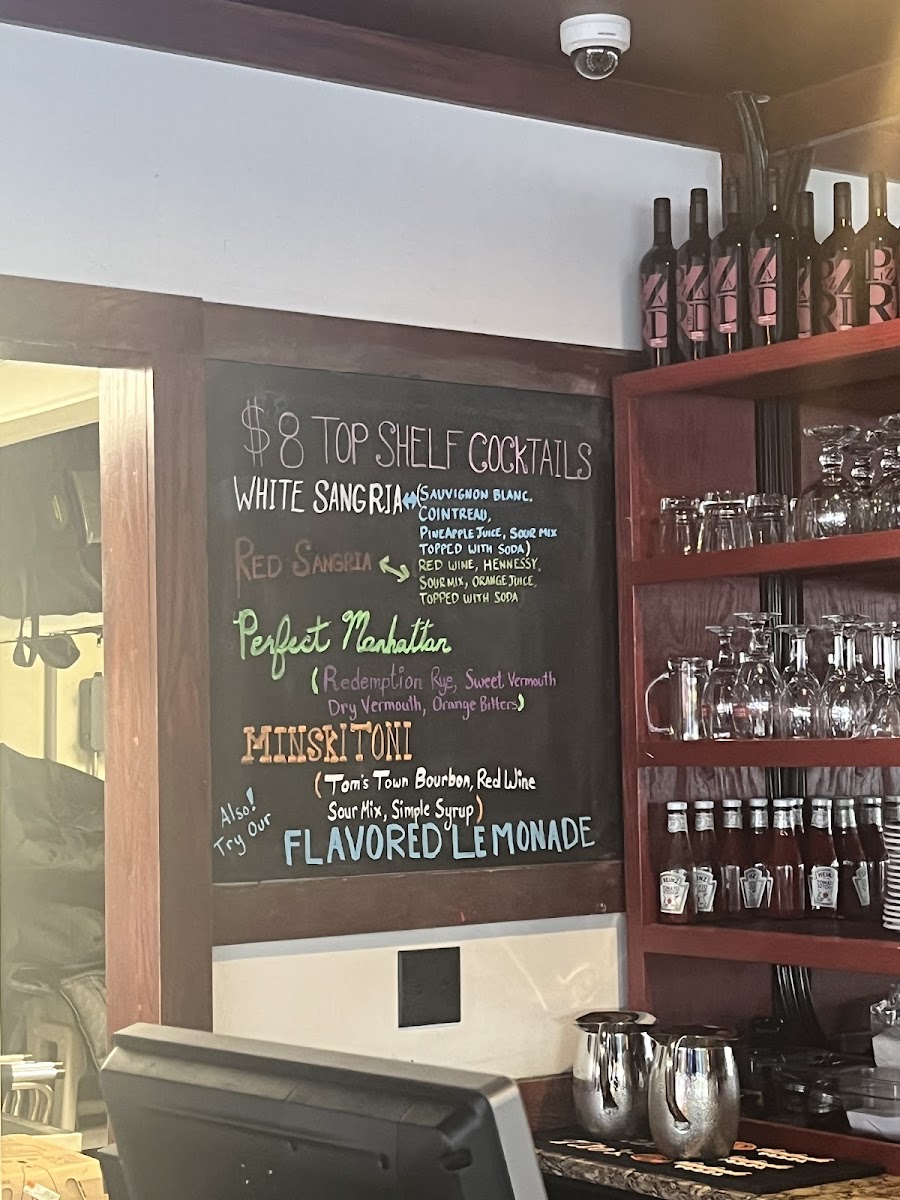 $8 TOP SHELF COCKTAILS
WHITE SANGRIA (SAUVIGNON BLANC.
COINTREAU,
PINEAPPLE JUICE, SOUR MIX
TOPPED WITH SODA)
RED SANGRIA RED WINE, HENNESSY,
SOUR MIX, ORANGE JUICE,
TOPPED WITH SODA
Perfect Manhattan
(Redemption Rye, Sweet Vermouth
Dry Vermouth, Orange Bitters)
MINSKITONI
(Tom's Town Bourbon, Red Wine
Sour Mix, Simple Syrup)
Also!
Try Our
FLAVORED LEMONADE
HEINZ
HEINZ
HEINZ